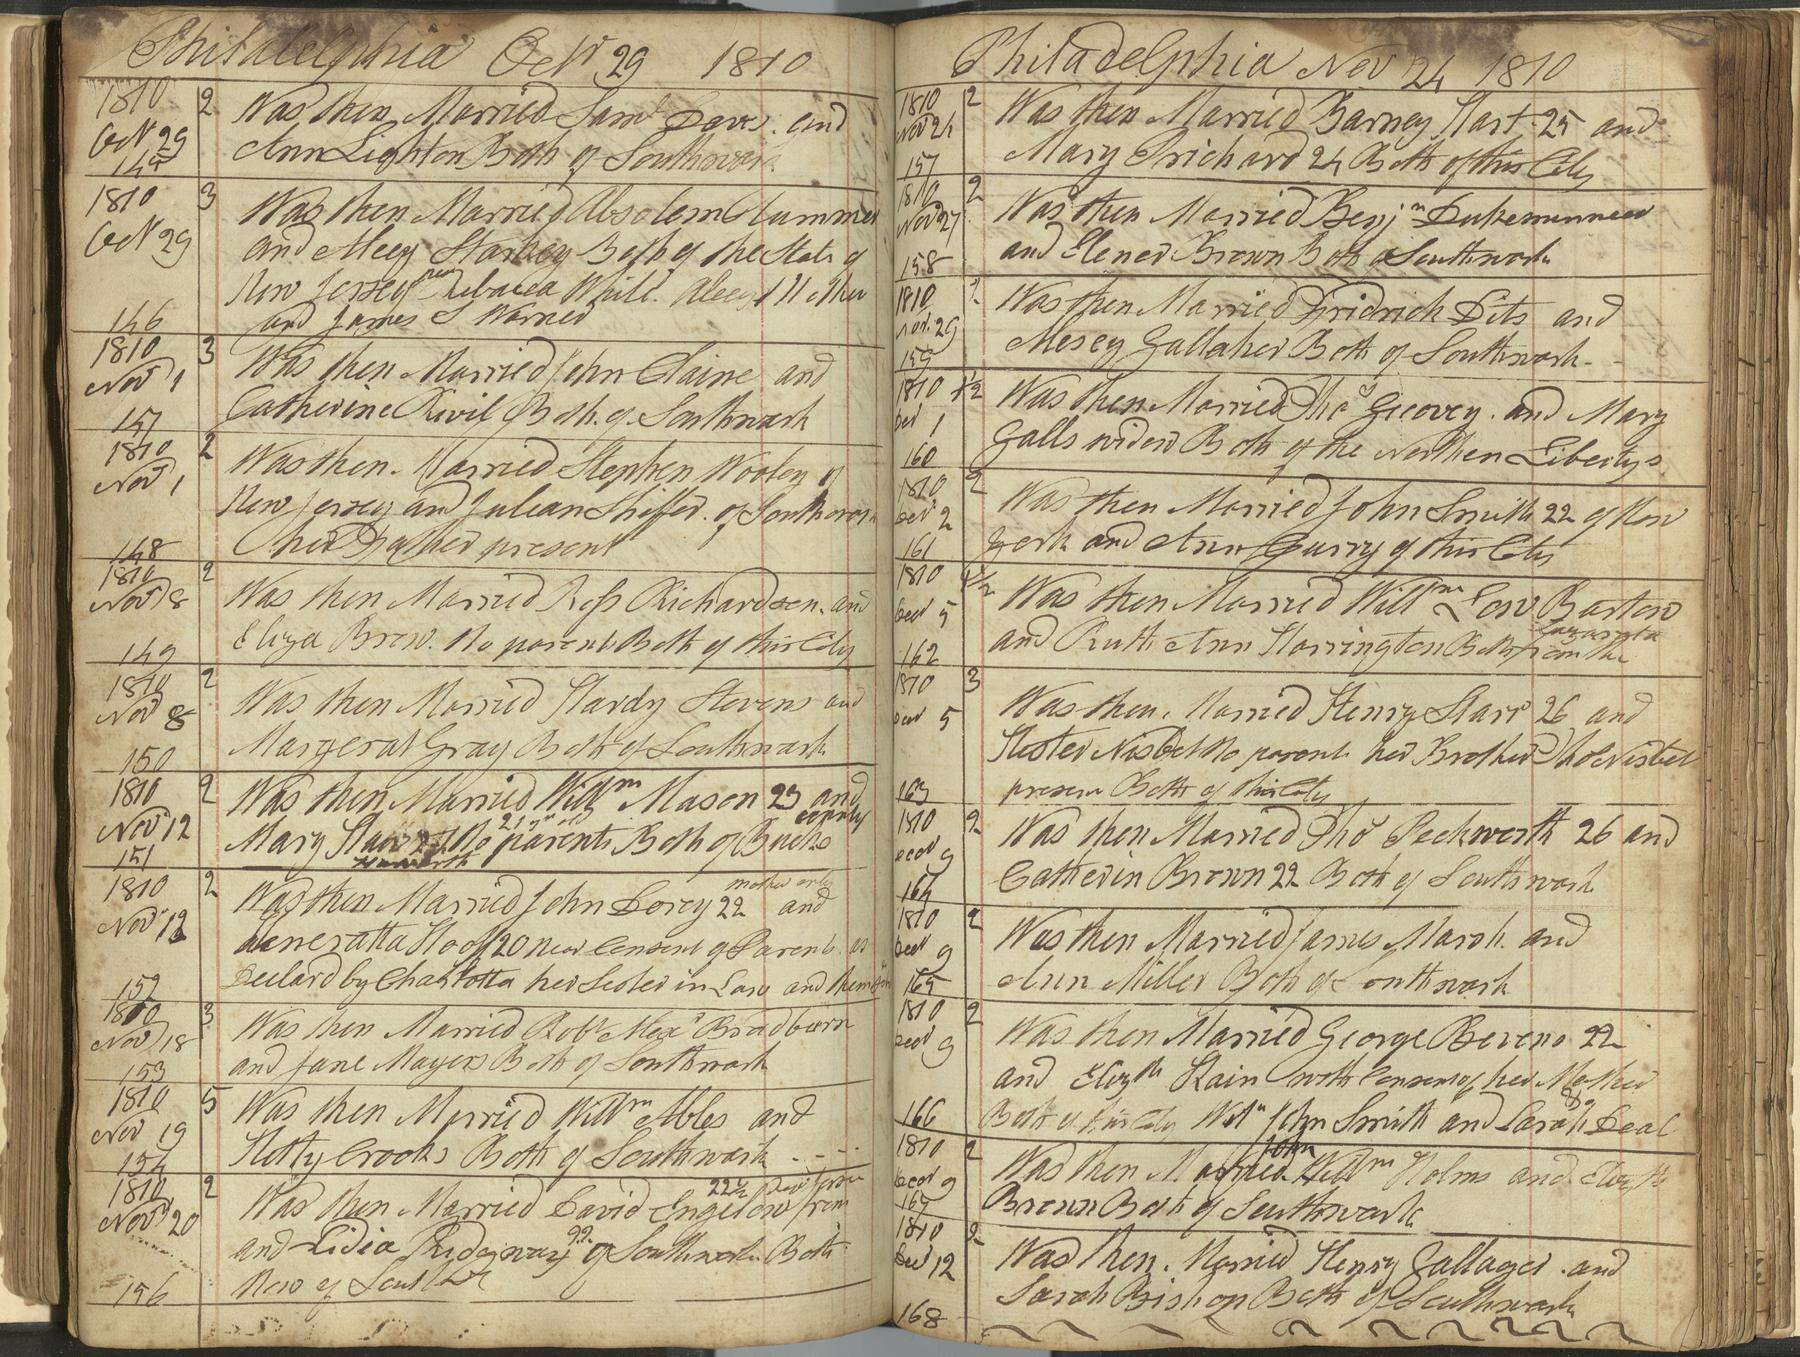 Philadelphia Octr 29 1810
1810 2 Was then Married Saml Daves. and
Oct 29 Ann Lighton Both of Southwark
145
1810 3 Was then Married Absolem Clummer
Oct 29 and Meey Starkey Both of the State of
New Jersey Rebacca White. Meey's Mother
146 and James S Warner
1810 3 Was then Married John Claine and
Nov 1 Catherine Rivil Both. of Southwark
147
1810 2 Was then. Married Stephen Wooley of
Nov 1 New Jersey and Julean Shiffer. of Southwark
148 her Father present
1810 2 Was then Married Ross Richardson. and
Nov 8 Eliza Brow. No parents Both of this City
149
1810 2 Was then Married Hardy Stevens and
Nov 8 Margerat Gray Both of Southwark
150
1810 2 Was then Married Willm Mason 23 and
county
Nov 12 Mary No parents Both of Bucks
151
mother only
1810 2 Was then Married John Dorey 22 and
Nov 12 Hoof 20 Consent of Parents. as
152 Declard by Charlotta her Sister in Law and them
1810 3 Was then Married Robt Alexr Bradburn
Nov 18 and Jane Mayers Both of Southwark
153
1810 5 Was then Married Willm Ables and
Nov 19 Hetty Crooks Both of Southwark - - - -
154
22½
1810 2 Was then Married David Engelow from
22
Nov 20 and Lidia Ridgway of Southwark. Both
156 Now of
Philadelphia Nov 24 1810
1810 2 Was then Married Barney Hart 25 and
Nov 24 Mary Prichard 24 Both of this City
157
1810 2 Was then Married Benjn Dukeminneer
Nov 27 and Elener Brown Both of Southwark
158
1810 2 Was then Married Fridrich Dits and
Nov. 29 Mesey Gallaher Both of Southwark -
159
1810 1½ Was then Married Thos Geovey. and Mary
Decr 1 Galls widow Both of the Northen Libertys
160
1810 2 Was then Married John Smith 22 of New
Decr 2 York and Ann Curry of this City
161
1810 1½ Was then Married Willm Low Barton
Decr 5 and Ruth Ann Harrington Both from the
162
1810 3 Was then. Married Henry Starr 26 and
Decr 5 Hester Nisbet No parents her Brother Tho Nisbet
163 present Both of this City
1810 2 Was then Married Thos Peckworth 26 and
Decr 9 Catherin Brown 22 Both of Southwark
164
1810 2 Was then Married James Marsh. and
Decr 9 Ann Miller Both of Southwark
165
1810 2 Was then Married George Bevens 22
Decr 9 and Elizth Stain with Consent of her Mother
166 Both of this City Witn John Smith and Sarah Deal
John
1810 2 Was then Married Willm Holms and Elizth
Decr 9 Brown Both of Southwark
167
1810 2 Was then. Married Henry Gallager. and
Decr 12 Sarah Bishop Both of Southwark
168